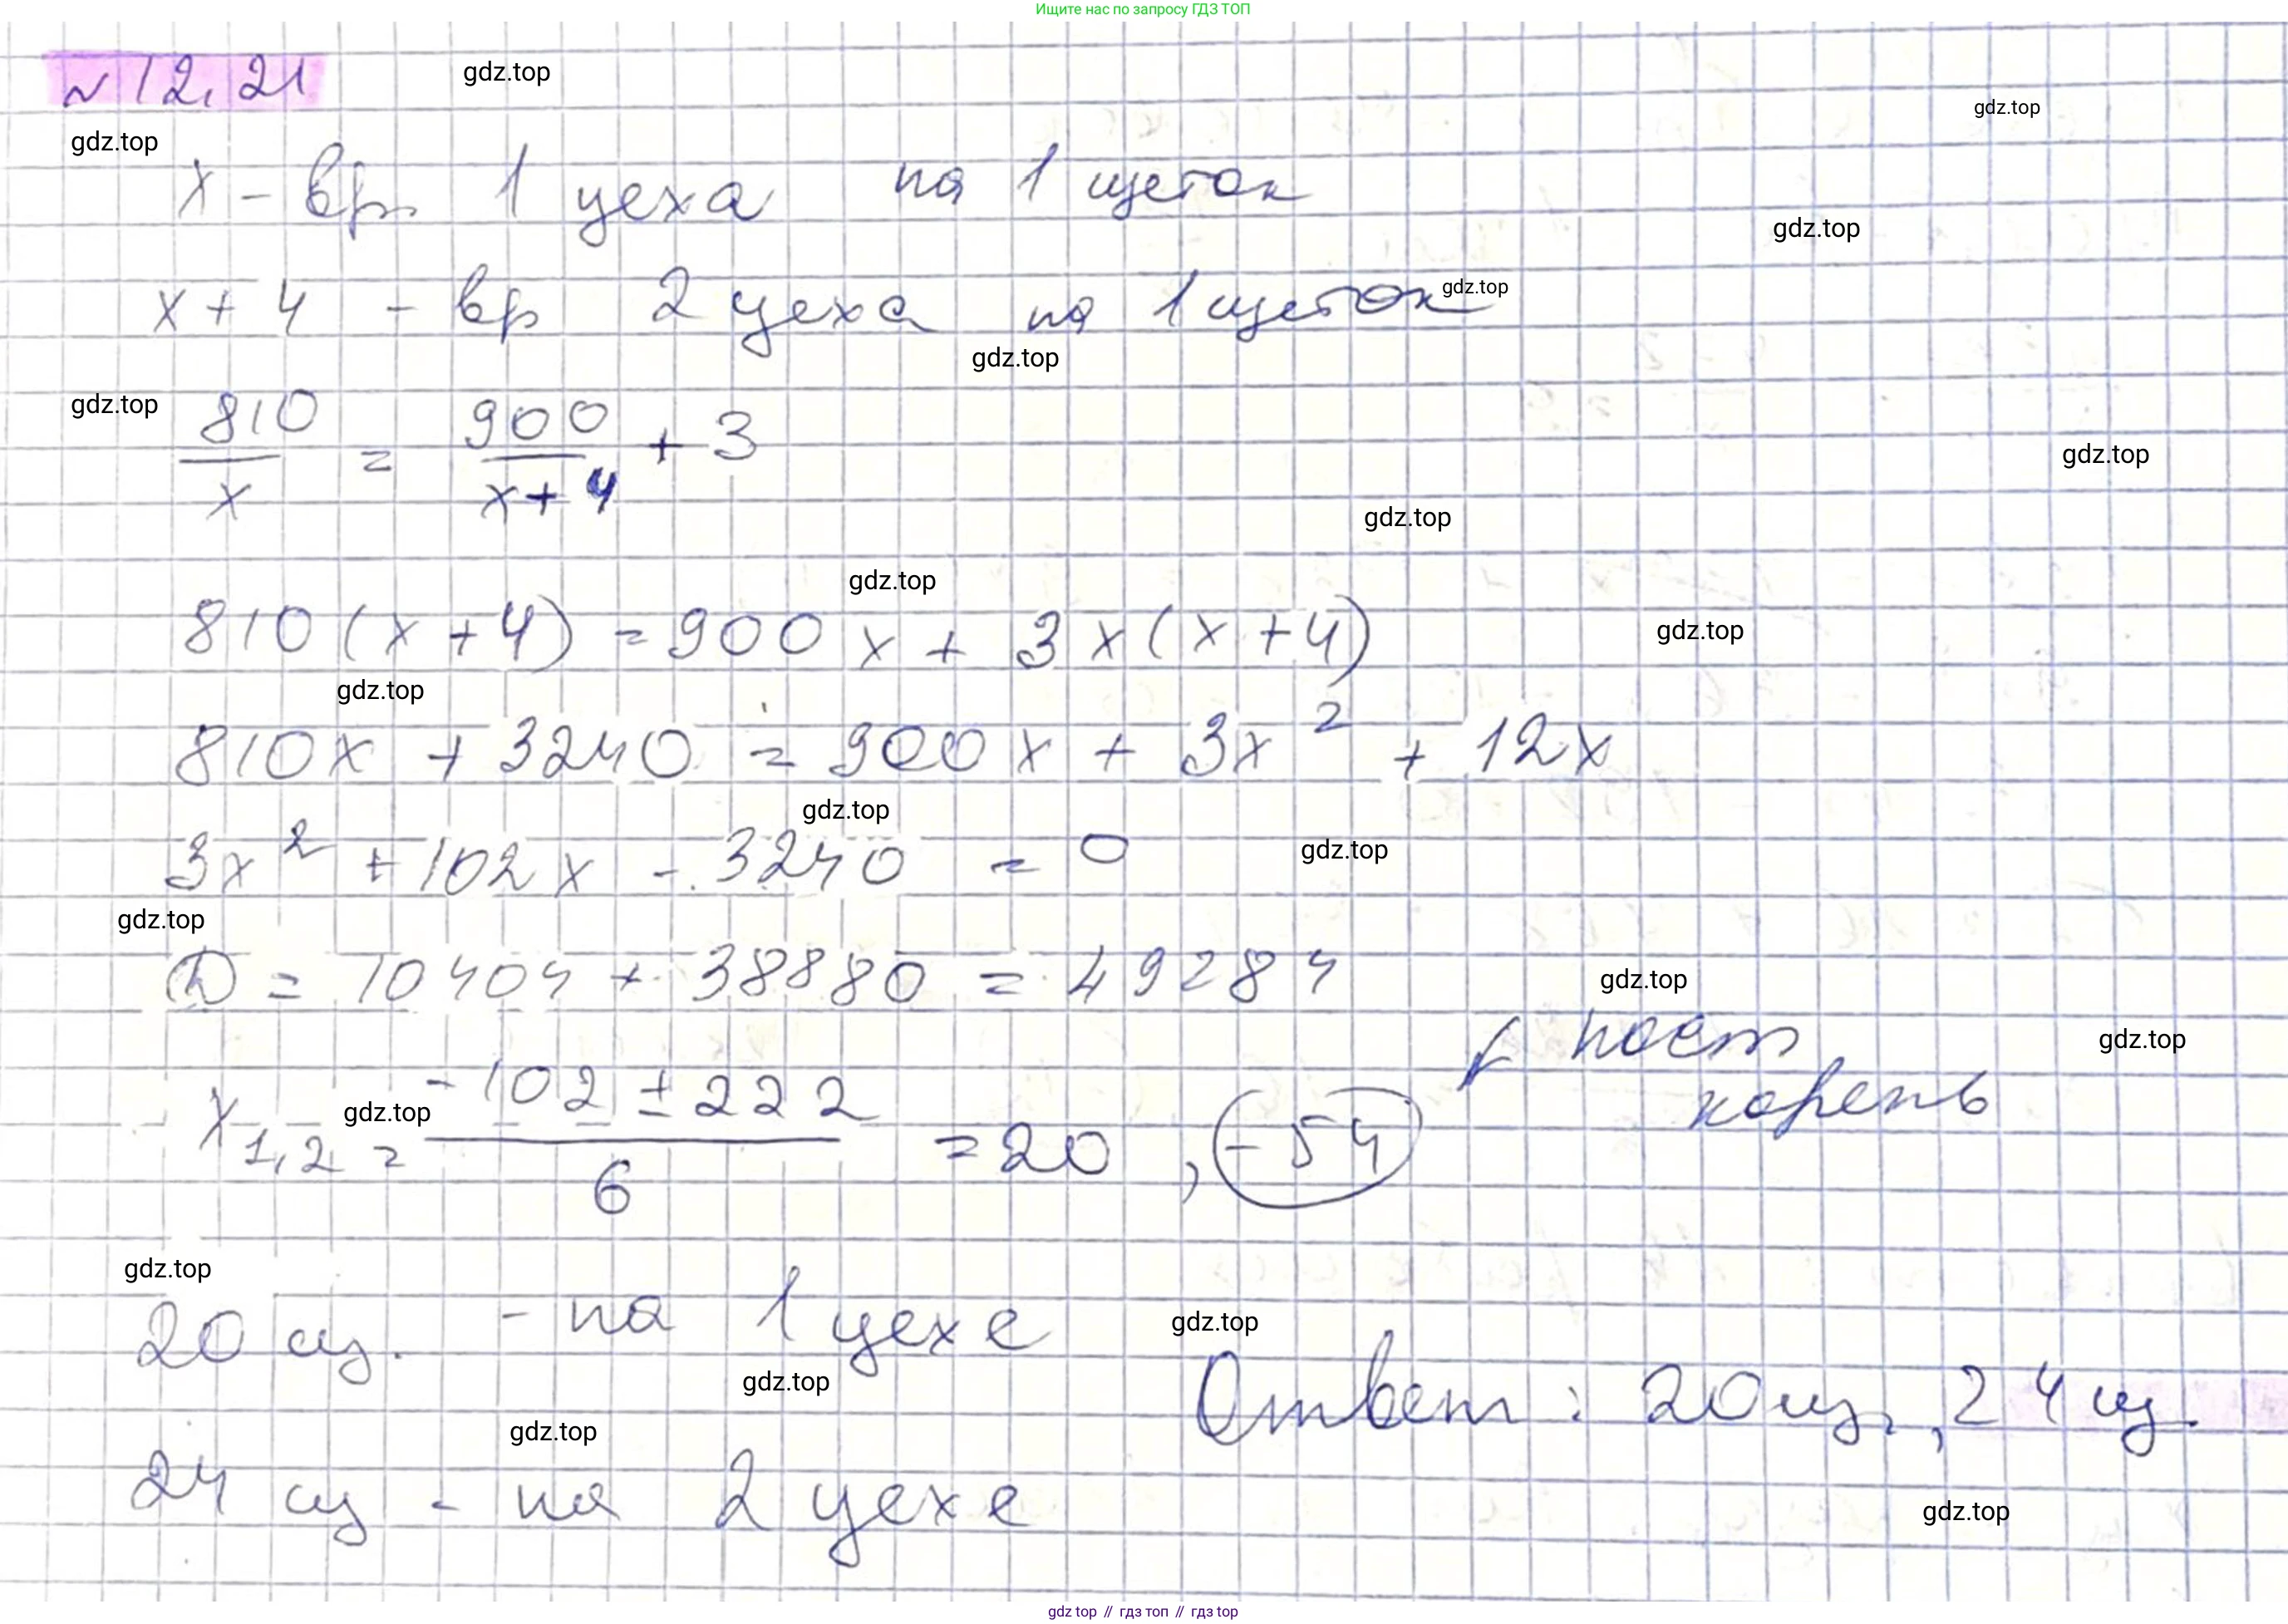 Ищите нас по запросу ГДЗ ТОП
№ 12.21
gdz.top
gdz.top
gdz.top
x - вр. 1 цеха на 1 щеток
gdz.top
x + 4 - вр 2 цеха на 1 щеток
gdz.top
gdz.top
gdz.top
810/x = 900/(x+4) + 3
gdz.top
gdz.top
gdz.top
810 (x + 4) = 900 x + 3 x (x + 4)
gdz.top
gdz.top
810x + 3240 = 900x + 3x² + 12x
gdz.top
3x² + 102x - 3240 = 0
gdz.top
gdz.top
D = 10404 + 38880 = 49284
gdz.top
пост
корень
gdz.top
x1,2 = (-102 ± 222)/6 = 20, -54
gdz.top
gdz.top
20 щ. - на 1 цехе
gdz.top
gdz.top
Ответ: 20 щ., 24 щ.
gdz.top
24 щ - на 2 цехе
gdz.top
gdz top // гдз топ // гдз top